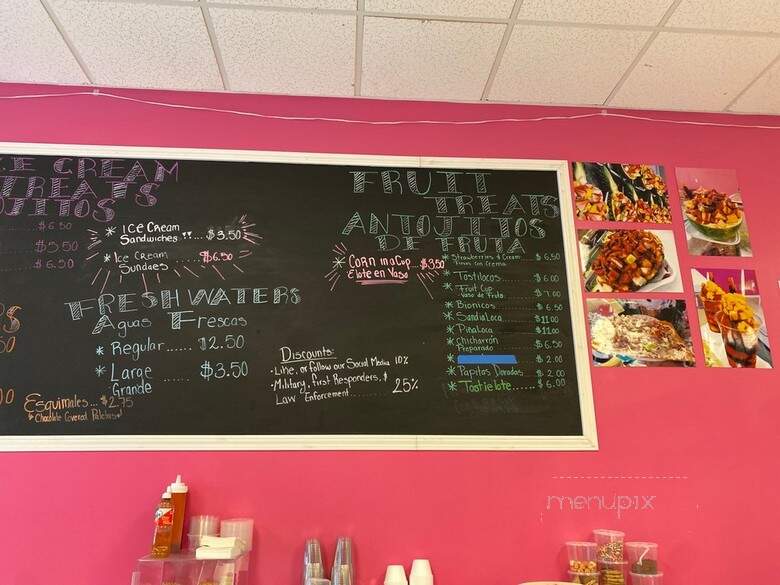 CE CREAM
TREATS
OJITOS
$6.50
$5.50
$6.50
* ICE Cream
Sandwiches .... $3.50
* Ice Cream
Sundaes $6.50
FRESH WATERS
Aguas Frescas
* Regular...... $2.50
* Large ..... $3.50
Grande
Esquimales... $2.75
* Chocolate Covered Paletas
Discounts:
• Like, or follow our Social Media 10%
• Military, first Responders, &
Law Enforcement ........ 25%
FRUIT
TREATS
ANTOJITOS
DE FRUTA
* CORN in a Cup $3.50
Elote en Vaso
* Strawberries & Cream .. $6.50
Fresas Con Crema
* Tostilocos ..... $6.00
* Fruit Cup
Vaso de Fruta $7.00
* Bionicos ..... $6.50
* Sandia Loca $11.00
* Piña Loca $11.00
* Chicharrón
Preparado $6.50
* $2.00
* Papitas Doradas $2.00
* Tostielote...... $6.00
menupix